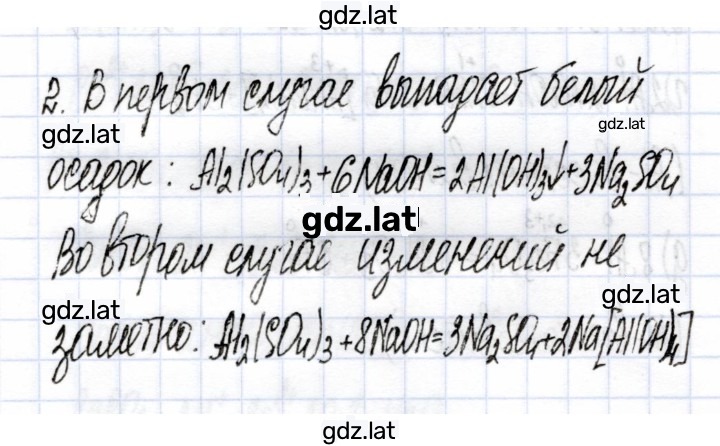 gdz.lat
2. В первом случае выпадает белый
gdz.lat
gdz.lat
осадок: Al₂(SO₄)₃+6NaOH=2Al(OH)₃↓+3Na₂SO₄
gdz.lat
Во втором случае изменений не
gdz.lat
gdz.lat
заметно: Al₂(SO₄)₃+8NaOH=3Na₂SO₄+2Na[Al(OH)₄]
gdz.lat